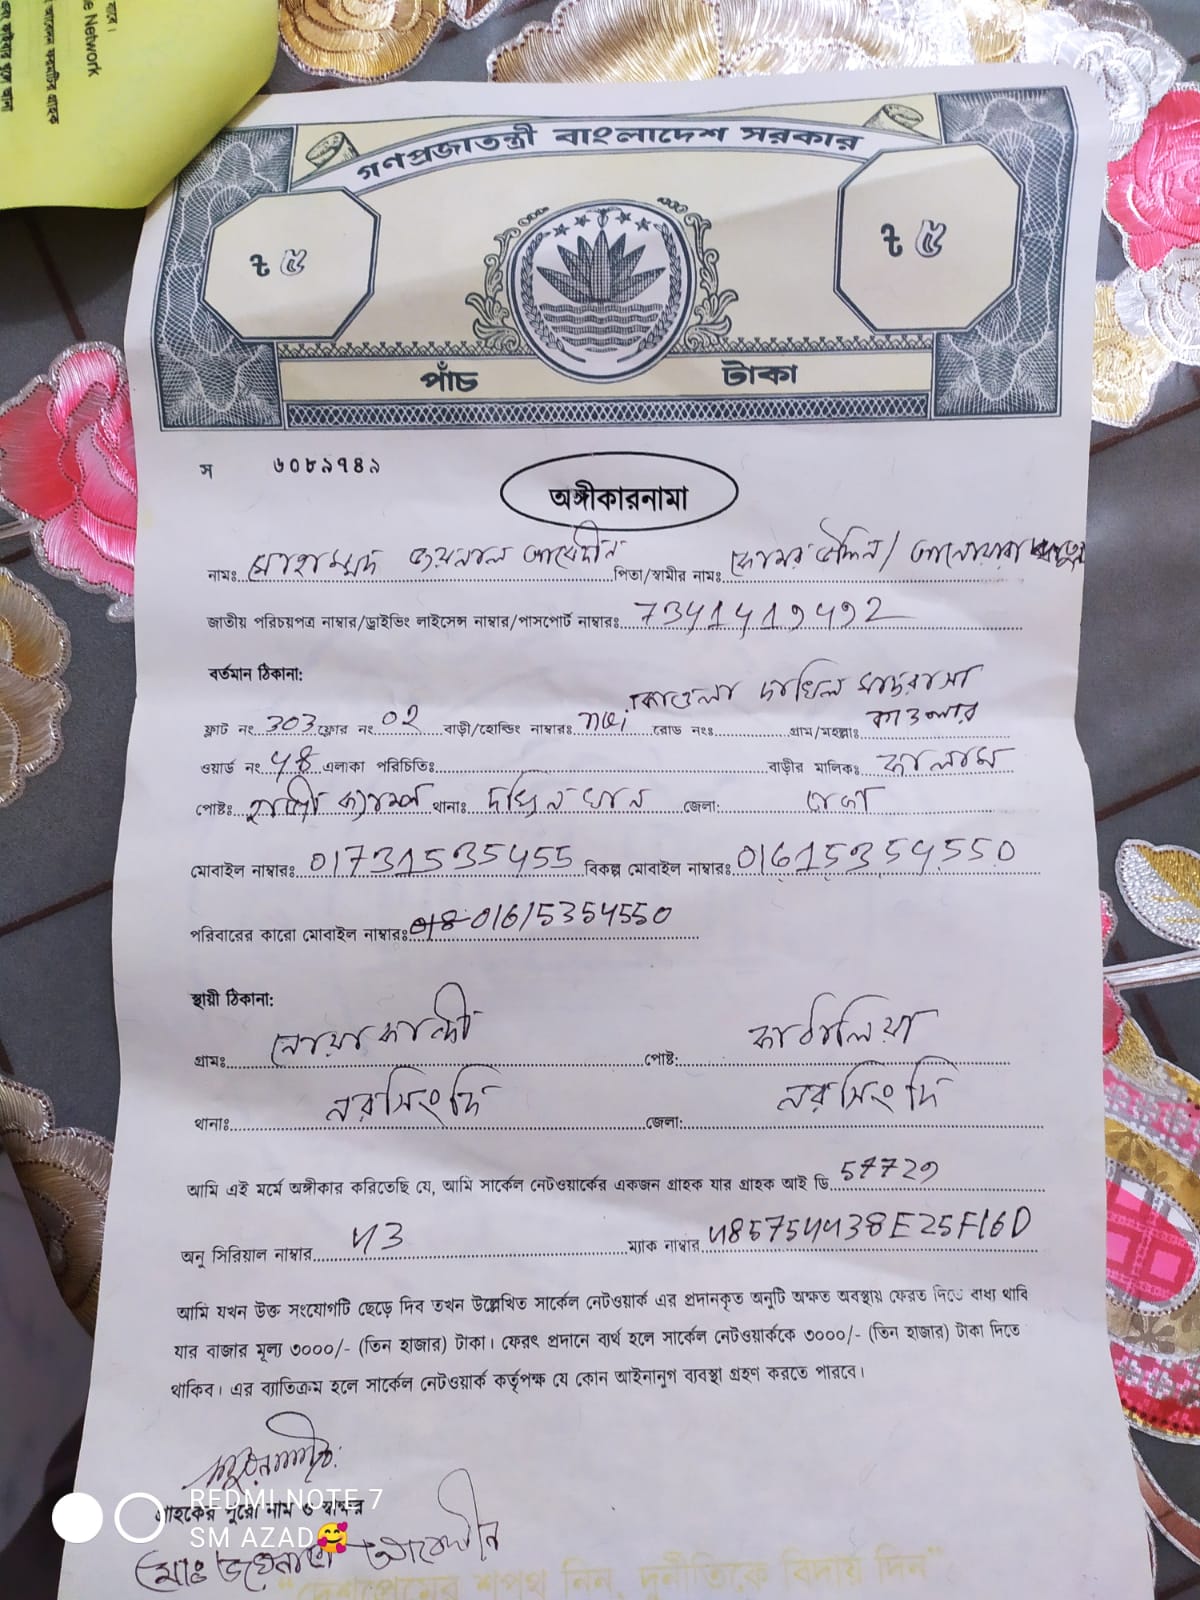 যাবে।
e Network
গণপ্রজাতন্ত্রী বাংলাদেশ সরকার
৳ ৫ ৳ ৫
পাঁচ টাকা
স ৬০৮৯৭৪৯
অঙ্গীকারনামা
নামঃ মোহাম্মদ জয়নাল আবেদীন পিতা/স্বামীর নামঃ কোমর উদ্দিন / আনোয়ারা
জাতীয় পরিচয়পত্র নাম্বার/ড্রাইভিং লাইসেন্স নাম্বার/পাসপোর্ট নাম্বারঃ
বর্তমান ঠিকানা:
কাওলা দাখিল মাদরাসা
ফ্লাট নং 303 ফ্লোর নং ০২ বাড়ী/হোল্ডিং নাম্বারঃ নাই রোড নংঃ গ্রাম/মহল্লাঃ কাওলার
ওয়ার্ড নং এলাকা পরিচিতিঃ বাড়ীর মালিকঃ কালাম
পোষ্টঃ হাজী ক্যাম্প থানাঃ দক্ষিনখান জেলা: ঢাকা
মোবাইল নাম্বারঃ 01731535455 বিকল্প মোবাইল নাম্বারঃ 01615354550
পরিবারের কারো মোবাইল নাম্বারঃ 01615354550
স্থায়ী ঠিকানা:
গ্রামঃ নোয়াকান্দী পোষ্ট: কাঠালিয়া
থানাঃ নরসিংদি জেলা: নরসিংদি
আমি এই মর্মে অঙ্গীকার করিতেছি যে, আমি সার্কেল নেটওয়ার্কের একজন গ্রাহক যার গ্রাহক আই ডি 57729
অনু সিরিয়াল নাম্বার 43 ম্যাক নাম্বার 485754438E25F16D
আমি যখন উক্ত সংযোগটি ছেড়ে দিব তখন উল্লেখিত সার্কেল নেটওয়ার্ক এর প্রদানকৃত অনুটি অক্ষত অবস্থায় ফেরত দিতে বাধ্য থাবি
যার বাজার মূল্য ৩০০০/- (তিন হাজার) টাকা। ফেরৎ প্রদানে ব্যর্থ হলে সার্কেল নেটওয়ার্ককে ৩০০০/- (তিন হাজার) টাকা দিতে
থাকিব। এর ব্যাতিক্রম হলে সার্কেল নেটওয়ার্ক কর্তৃপক্ষ যে কোন আইনানুগ ব্যবস্থা গ্রহণ করতে পারবে।
গ্রাহকের পুরো নাম ও স্বাক্ষর
REDMI NOTE 7
SM AZAD🥰
মোঃ জয়নাল আবেদীন
"দেশপ্রেমের শপথ নিন, দুর্নীতিকে বিদায় দিন"